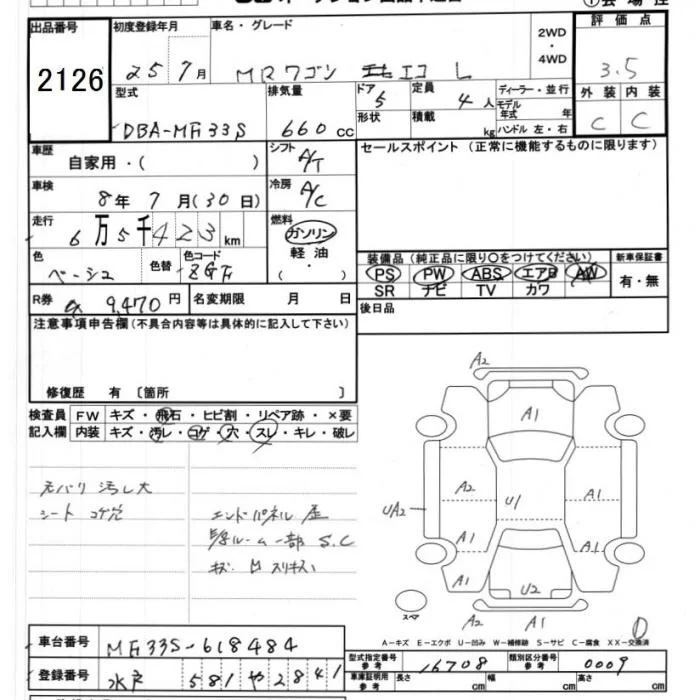 出品番号
2126
初度登録年月
25 7月
車名・グレード
MRワゴン エコ L
2WD
・
4WD
評価点
3.5
外装 内装
C C
型式
DBA-MF33S
排気量
660 cc
ドア 5
形状
定員 4人
積載 kg
ディーラー・並行
モデル年式 年
ハンドル 左・右
車歴
自家用・( )
車検
8年 7月(30日)
走行
6万5千423km
色
ベージュ
色替
色コード
ZGF
シフト
A/T
冷房
A/C
燃料
ガソリン
軽油
( ・ )
セールスポイント(正常に機能するものに限ります)
装備品(純正品に限り○をつけてください)
PS PW ABS エアB AW
SR ナビ TV カワ
新車保証書
有・無
R券 9,470円
名変期限 月 日
後日品
注意事項申告欄(不具合内容等は具体的に記入して下さい)
修復歴 有 〔箇所 〕
検査員
記入欄
FW キズ・飛石・ヒビ割・リペア跡・×要
内装 キズ・汚レ・コゲ・穴・スレ・キレ・破レ
元バリ 汚レ大
シート コゲ穴
エンドパネル 歪
ルーム一部 S.C
キズ 凹 スリキズ
A2
A1
A2
A1
UA2
U1
A1
A1
A1
A1
U2
A2
A1
スペア
A-キズ E-エクボ U-凹み W-補修跡 S-サビ C-腐食 XX-交換済
車台番号
MF33S-618484
登録番号
水戸 581 や 2841
型式指定番号
参考
16708
類別区分番号
参考
0009
車庫証明用
参考
長さ cm
幅 cm
高さ cm